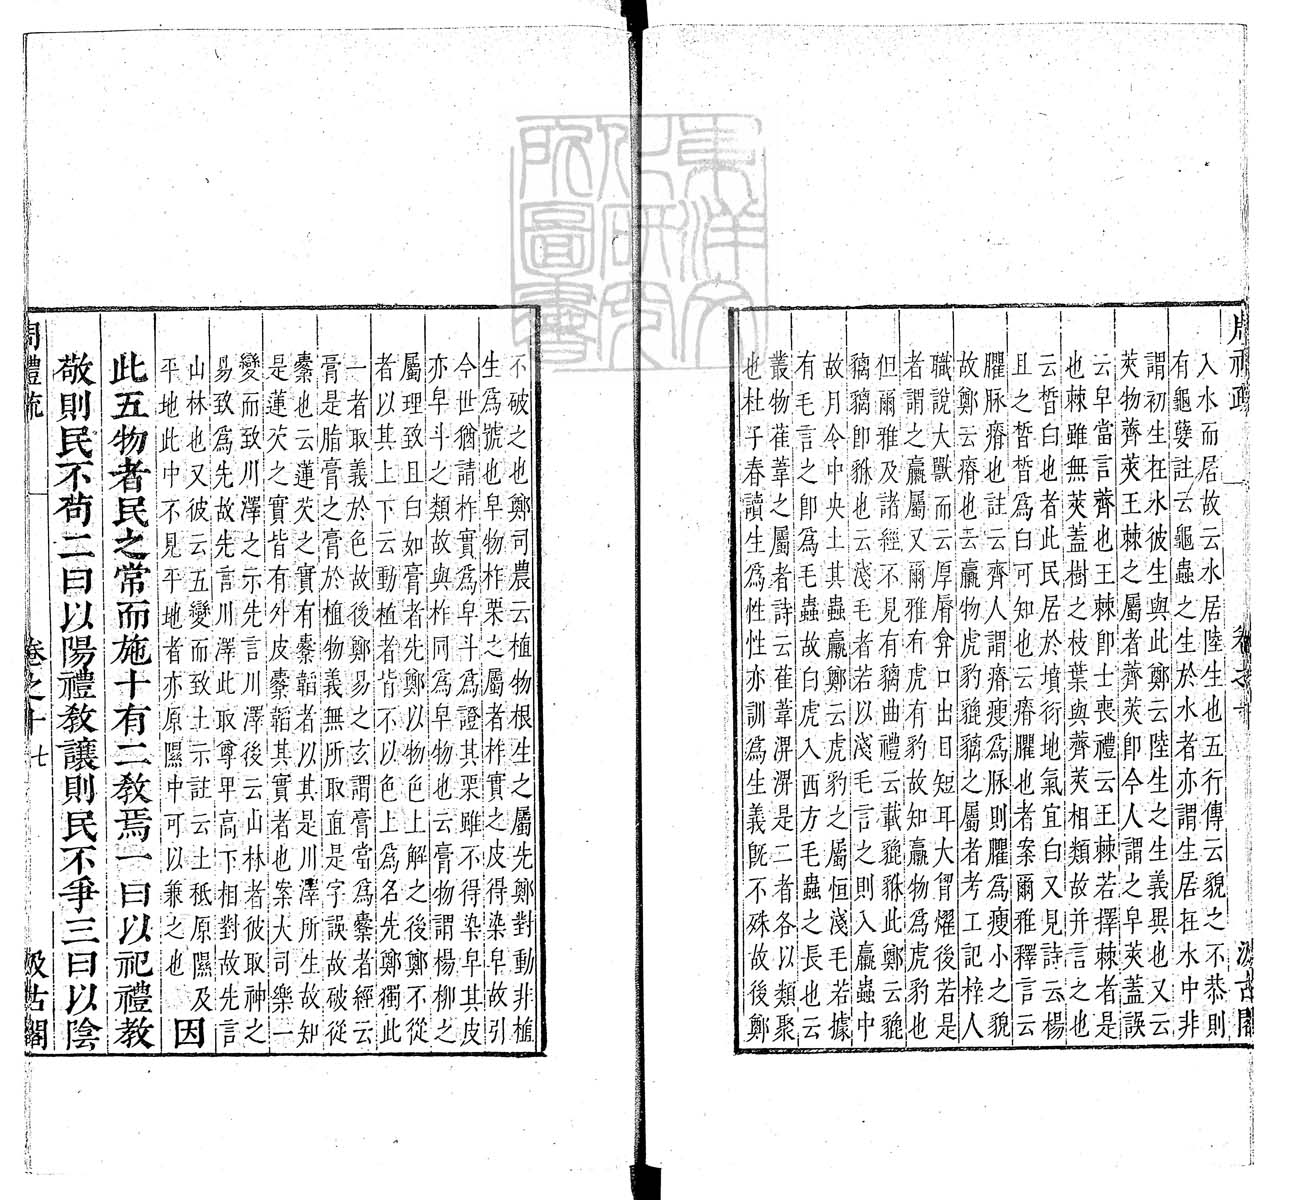 周禮疏 卷之十 汲古閣
入水而居故云水居陸生也五行傳云貌之不恭則
有龜孽註云龜蟲之生於水者亦謂生居在水中非
謂初生在水彼生與此鄭云陸生之生義異也又云
莢物薺莢王棘之屬者薺莢即今人謂之皁莢蓋誤
云皁當言薺也王棘即士喪禮云王棘若擇棘者是
也棘雖無莢蓋樹之枝葉與薺莢相類故并言之也
云晳白也者此民居於墳衍地氣宜白又見詩云楊
且之晳晳為白可知也云瘠臞也者案爾雅釋言云
臞脉瘠也註云齊人謂瘠瘦為脉則臞為瘦小之貌
故鄭云瘠也云臝物虎豹貔貐之屬者考工記梓人
職說大獸而云厚脣弇口出目短耳大胷燿後若是
者謂之臝屬又爾雅有虎有豹故知臝物為虎豹也
但爾雅及諸經不見有貐曲禮云載貔貅此鄭云貔
貐貐即貅也云淺毛者若以淺毛言之則入臝蟲中
故月令中央土其蟲臝鄭云虎豹之屬恒淺毛若據
有毛言之即為毛蟲故白虎入西方毛蟲之長也云
叢物萑葦之屬者詩云萑葦淠淠是二者各以類聚
也杜子春讀生為性性亦訓為生義既不殊故後鄭
不破之也鄭司農云植物根生之屬先鄭對動非植
生為號也皁物柞栗之屬者柞實之皮得染皁故引
今世猶請柞實為皁斗為證其栗雖不得染皁其皮
亦皁斗之類故與柞同為皁物也云膏物謂楊柳之
屬理致且白如膏者先鄭以物色上解之後鄭不從
者以其上下云動植者皆不以色上為名先鄭獨此
一者取義於色故後鄭易之玄謂膏當為櫜者經云
膏是脂膏之膏於植物義無所取直是字誤故破從
櫜也云蓮芡之實有櫜韜者以其是川澤所生故知
是蓮芡之實皆有外皮櫜韜其實者也案大司樂一
變而致川澤之示先言川澤後云山林者彼取神之
易致為先故先言川澤此取尊卑高下相對故先言
山林也又彼云五變而致土示註云土秪原隰及
平地此中不見平地者亦原隰中可以兼之也
因
此五物者民之常而施十有二教焉一曰以祀禮教
敬則民不苟二曰以陽禮教讓則民不爭三曰以陰
周禮疏 卷之十 七 汲古閣
東洋文化研究所圖書